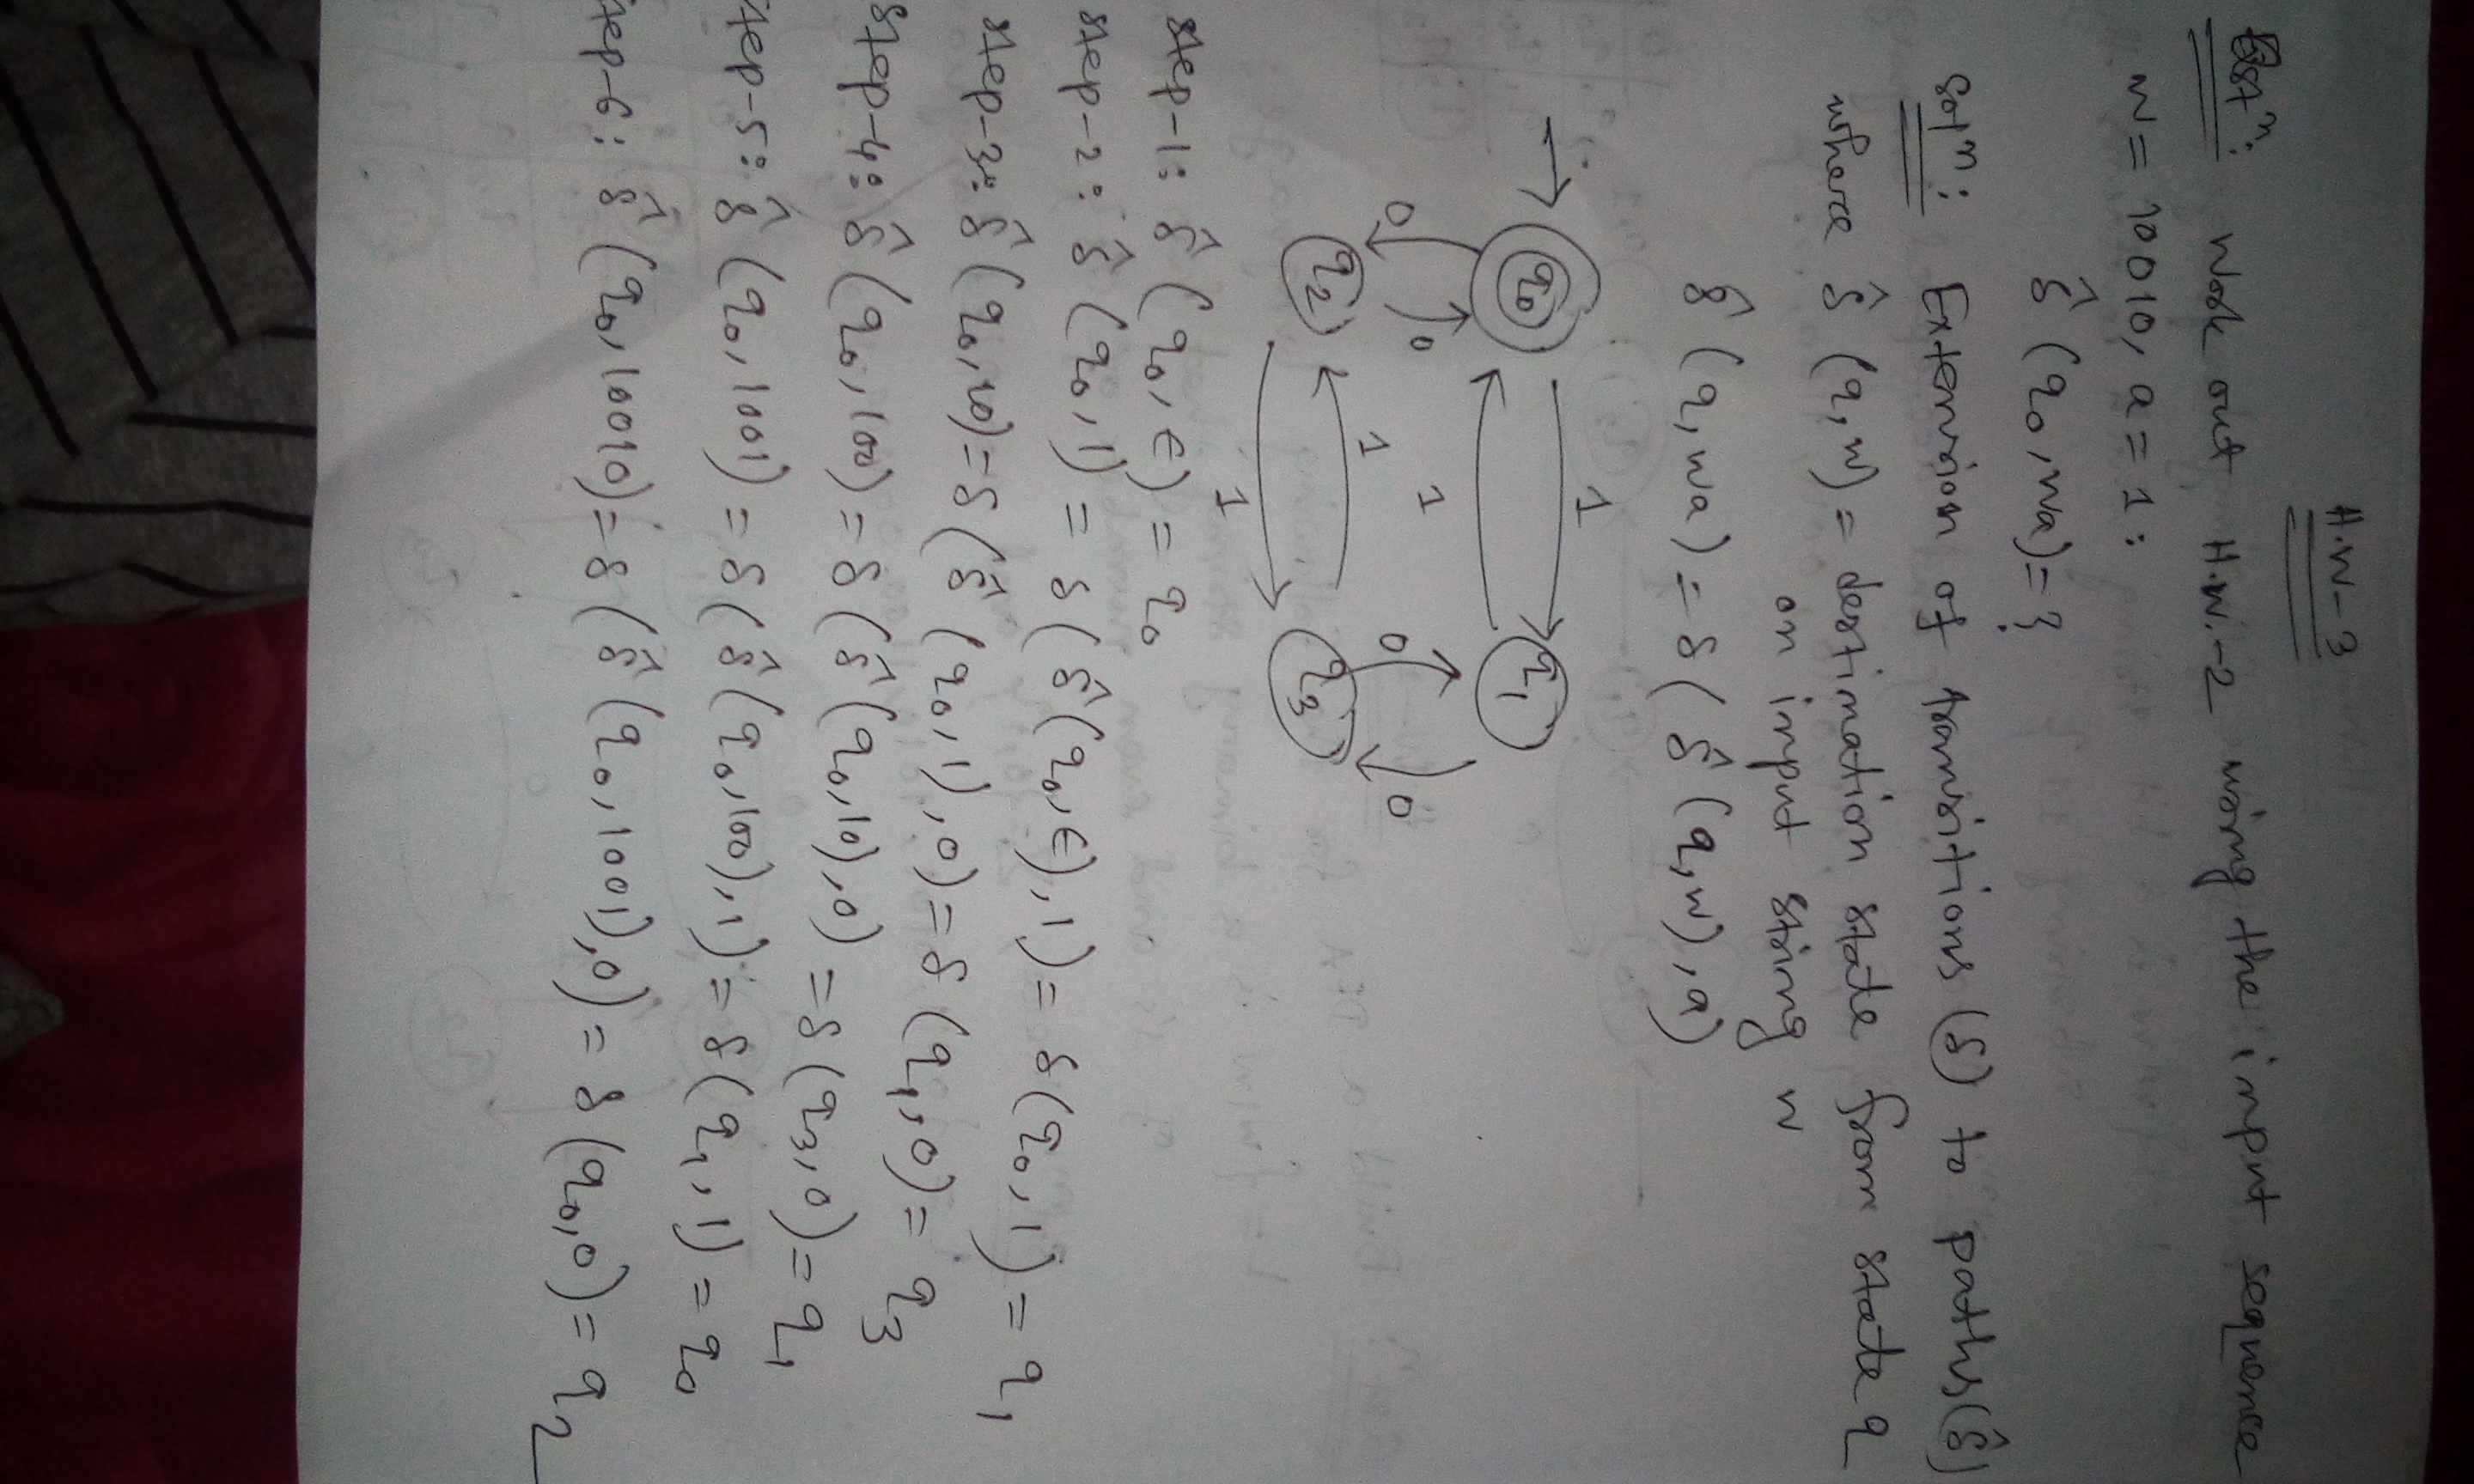 H.W-3
Qstⁿ: Work out H.W.-2 using the input sequence
w = 10010, a = 1:
δ̂ (q₀, wa) = ?
Solⁿ: Extension of transitions (δ) to paths (δ̂)
where δ̂ (q, w) = destination state from state q
on input string w
δ̂ (q, wa) = δ ( δ̂ (q, w), a)
1
q₀ q₁
1
0 0 0 0
1
q₂ q₃
1
step-1: δ̂ (q₀, ϵ) = q₀
step-2: δ̂ (q₀, 1) = δ ( δ̂ (q₀, ϵ), 1) = δ (q₀, 1) = q₁
step-3: δ̂ (q₀, 10) = δ ( δ̂ (q₀, 1), 0) = δ (q₁, 0) = q₃
step-4: δ̂ (q₀, 100) = δ ( δ̂ (q₀, 10), 0) = δ (q₃, 0) = q₁
step-5: δ̂ (q₀, 1001) = δ ( δ̂ (q₀, 100), 1) = δ (q₁, 1) = q₀
step-6: δ̂ (q₀, 10010) = δ ( δ̂ (q₀, 1001), 0) = δ (q₀, 0) = q₂